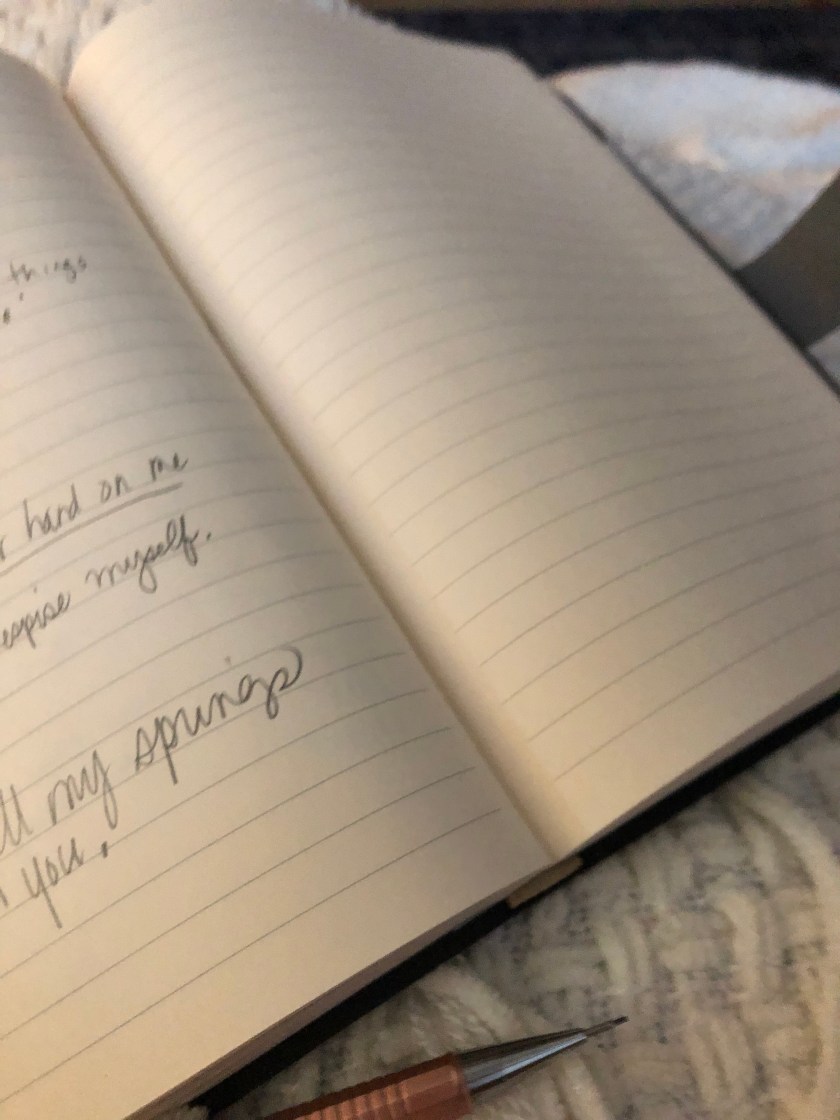 things
hard on me
espise myself.
ll my springs
you.